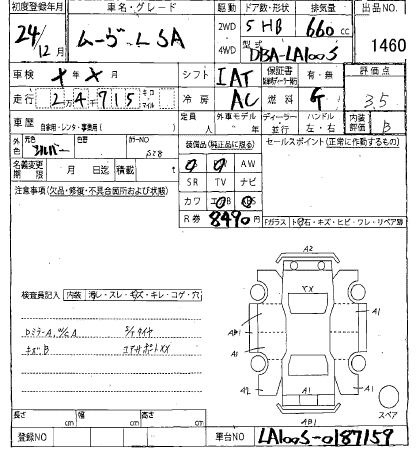 初度登録年月 車名・グレード 駆動 ドア数・形状 排気量 出品NO
24/12月 ムーヴ L SA 2WD 5 HB 660 cc
4WD 型式 DBA-LA100S 1460
車検 X年X月 シフト IAT 保証書 有・無 評価点
走行 2万4千715 キロ マイル 冷房 AC 燃料 G 3.5
車歴 自家用・レンタ・事業用( ) 定員 人 外車モデル ディーラー 並行 ハンドル 左・右 内装評価 B
外色 元色 シルバー 色替 カラーNO S28 装備品(純正品に限る) セールスポイント(正常に作動するもの)
名義変更期限 月 日迄 積載 t AW
注意事項(欠品・修復・不具合箇所および状態) SR TV ナビ
カワ エアB ABS
R券 8490円 Fガラス ト石・キズ・ヒビ・ワレ・リペア跡
A2
XX
検査員記入 内装 汚レ・スレ・キズ・キレ・コゲ・穴
A1 A1
キズB
A1 A1
A2 A1 A1
スペア
AB1
長さ cm 幅 cm 高さ cm
登録NO 車台NO LA100S-0187159